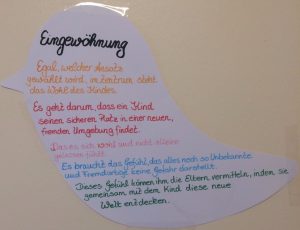 Eingewöhnung
Egal, welcher Ansatz
gewählt wird, im Zentrum steht
das Wohl des Kindes.
Es geht darum, dass ein Kind
seinen sicheren Platz in einer neuen,
fremden Umgebung findet.
Das es sich wohl und nicht alleine
gelassen fühlt.
Es braucht das Gefühl, das alles noch so Unbekannte
und Fremdartige keine Gefahr darstellt.
Dieses Gefühl können ihm die Eltern vermitteln, indem sie
gemeinsam mit dem Kind diese neue
Welt entdecken.